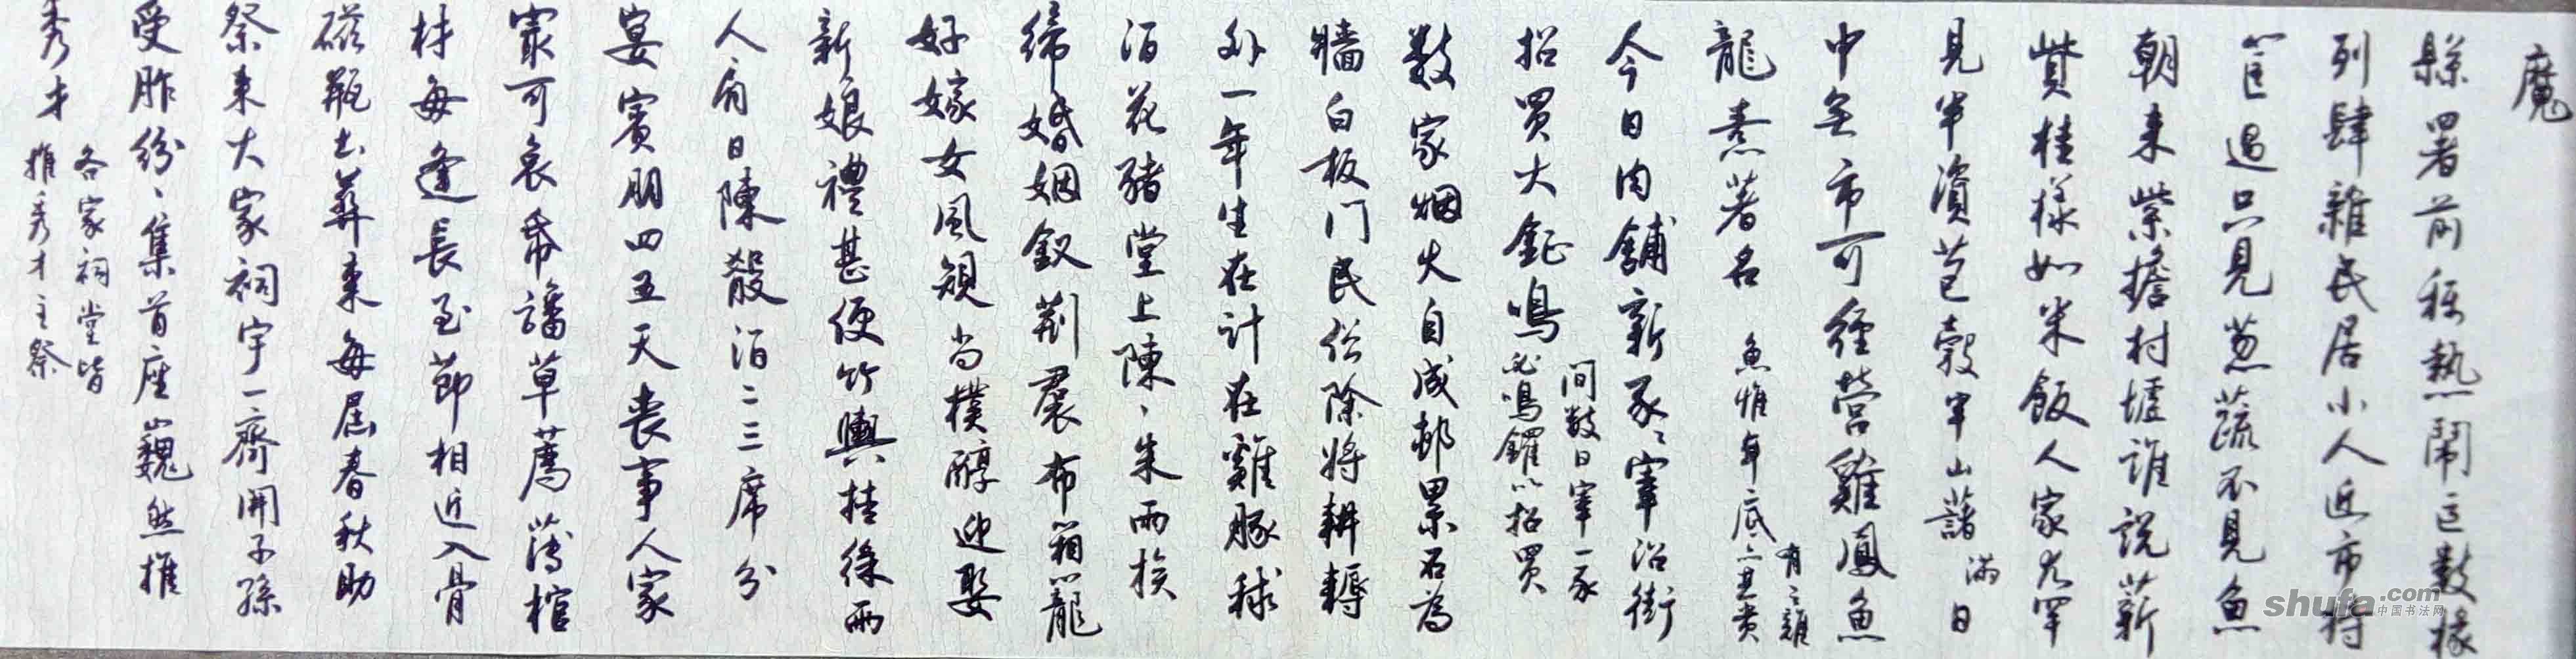 魔
縣署前稱熱鬧區數椽
列肆雜民居小人近市持
筐過只見蔥蔬不見魚
朝來柴擔村墟誰說薪
貲桂樣如米飯人家尤罕
見半資苞穀半山藷 滿日
中無市可經營雞鳳魚
龍素著名 魚惟年底有之雞亦貴
今日肉舖新豕宰沿街
招買大鉦鳴 間數日宰一豕必鳴鑼以招買
數家烟火自成邨累石為
牆白板门民俗除將耕耨
外一年生在計在雞豚稼
酒花豬堂上陳朱雨挨
締婚姻釵荊裙布箱籠
好嫁女風規尚樸醇迎娶
新娘禮甚便竹輿挂綵兩
人肩日陳殽酒二三席分
宴賓朋四五天喪事人家
家可哀希譒草薦薄棺
材每逢長至節相近入骨
磁瓶土葬來每屆春秋助
祭來大家祠宇一齊開子孫
受胙紛紛集首座巍然推
秀才 各家祠堂皆推秀才主祭
shufa.com
中国书法网